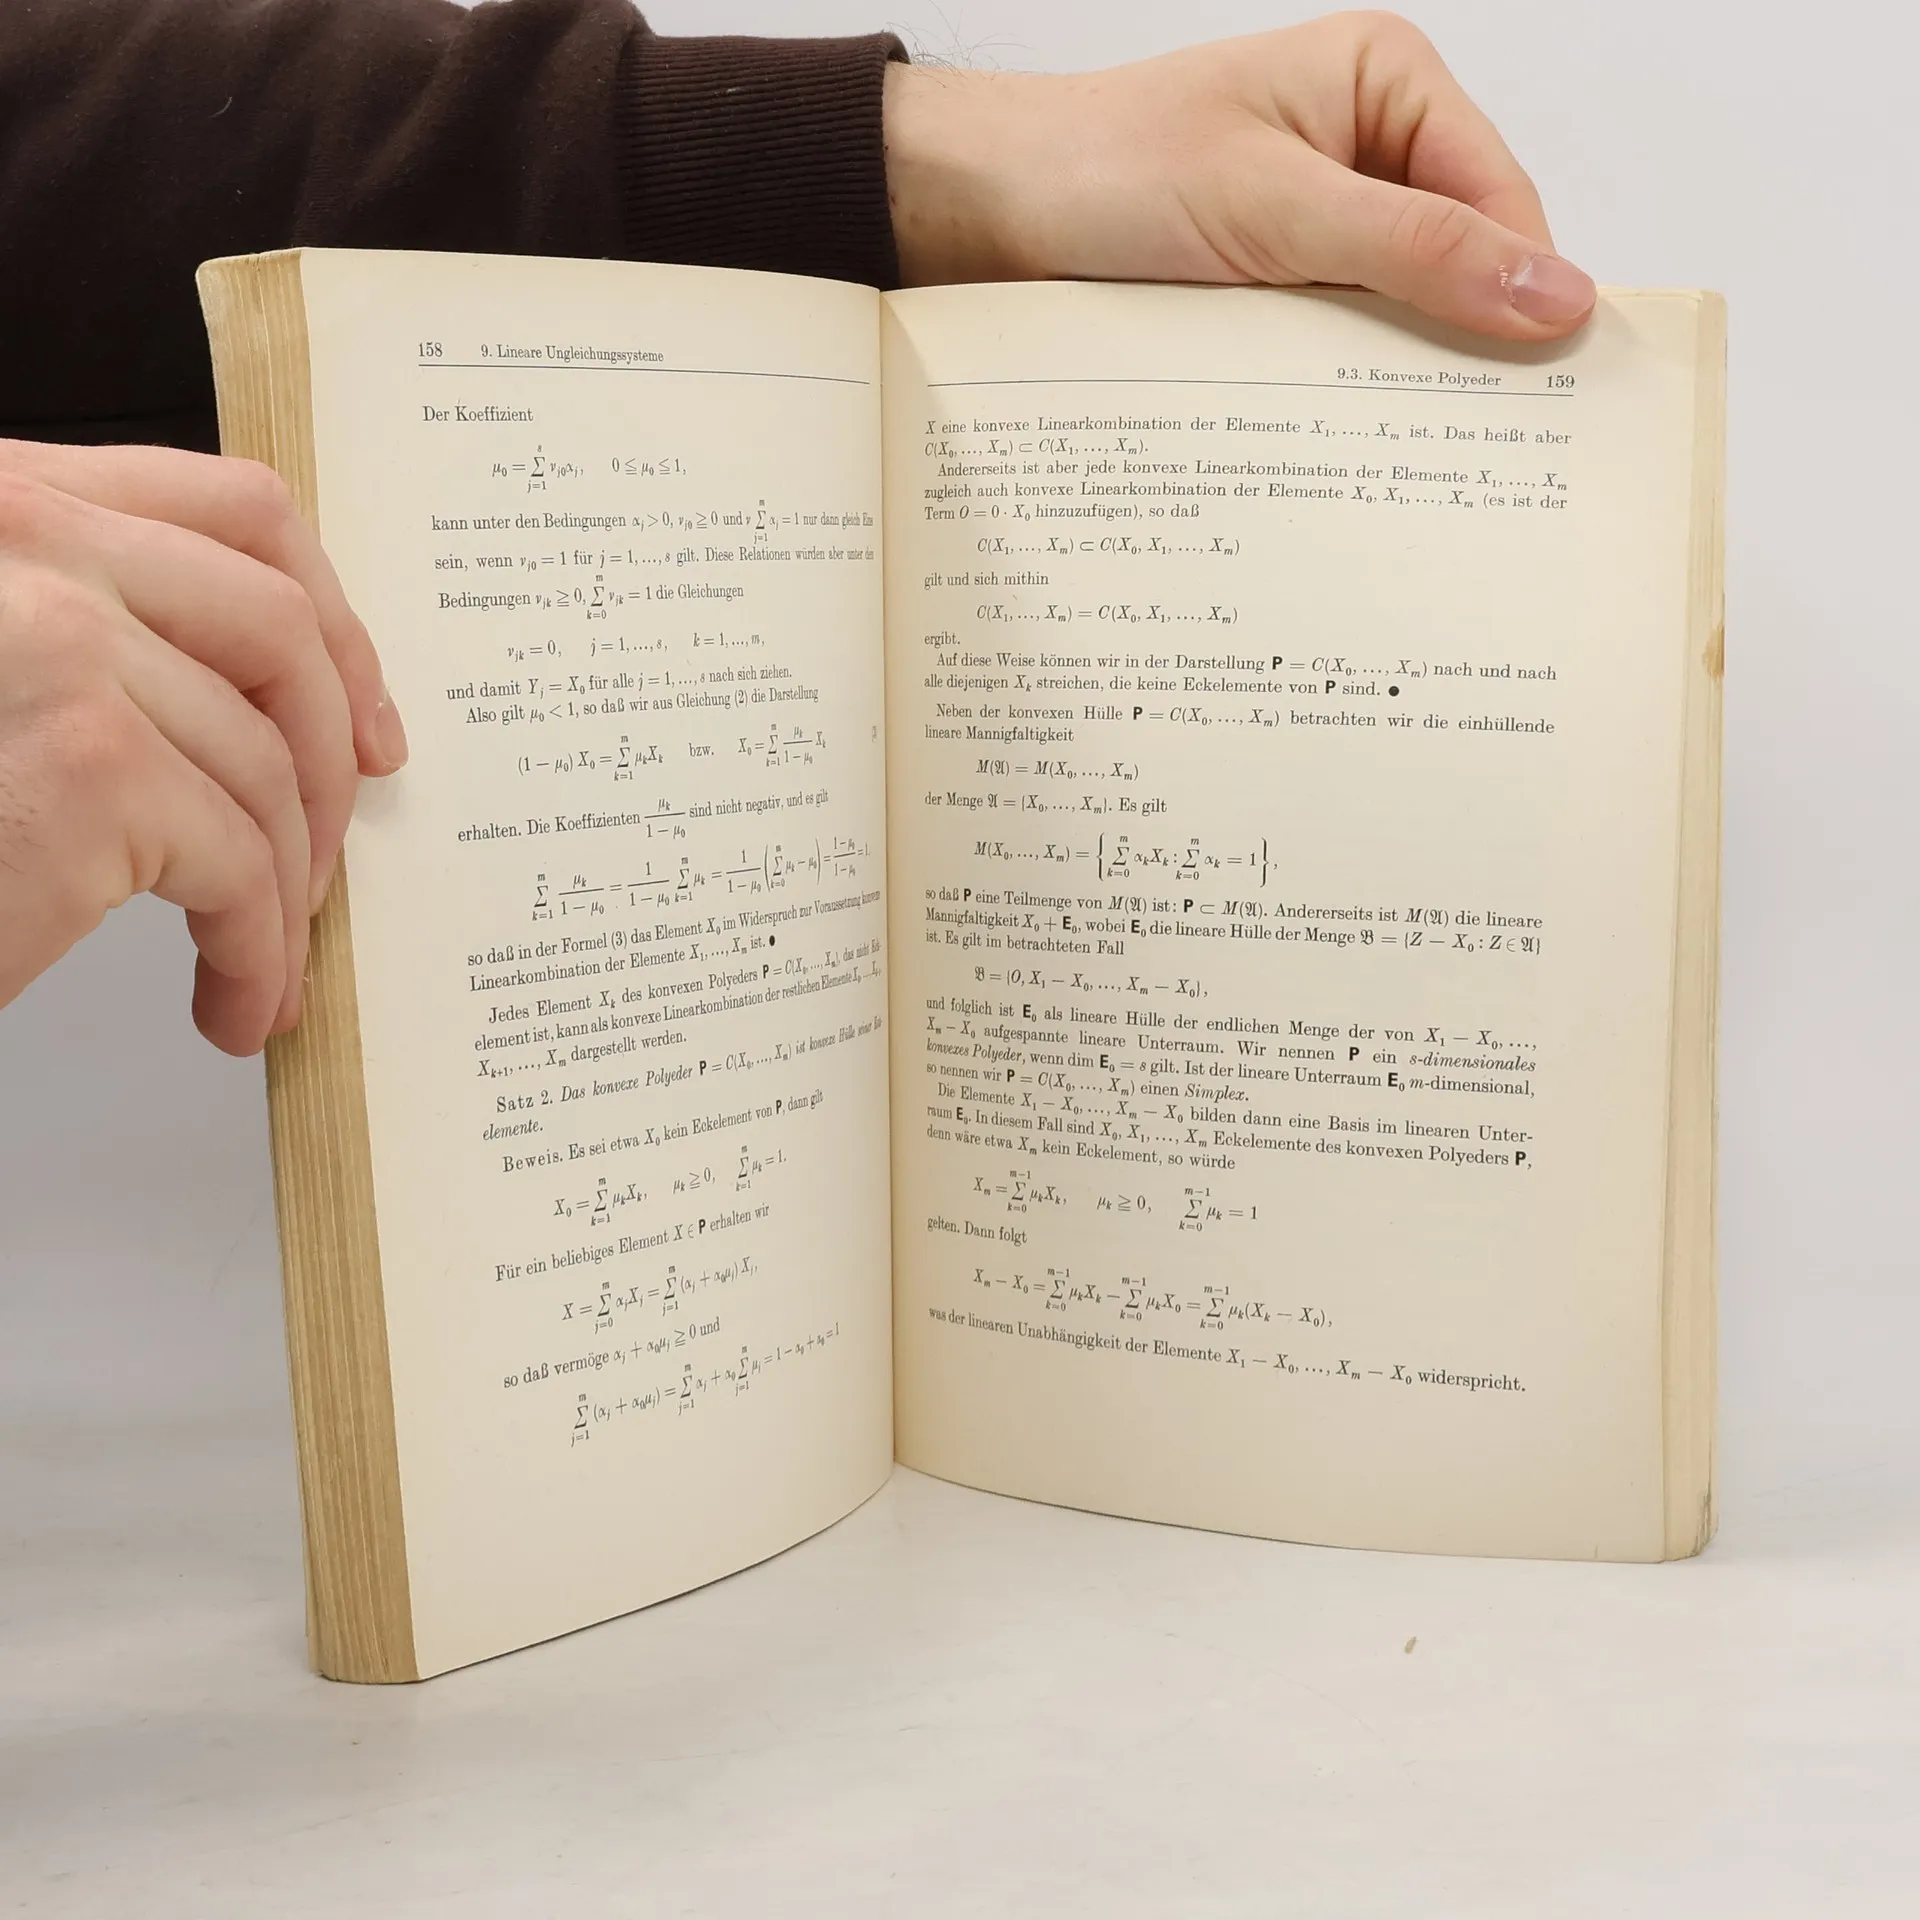 158 9. Lineare Ungleichungssysteme
Der Koeffizient
μ₀ = ∑_{j=1}^{s} ν_{j0}α_j, 0 ≦ μ₀ ≦ 1,
kann unter den Bedingungen α_j > 0, ν_{j0} ≧ 0 und ν ∑_{j=1}^{m} α_j = 1 nur dann gleich Eins
sein, wenn ν_{j0} = 1 für j = 1, ..., s gilt. Diese Relationen würden aber unter den
Bedingungen ν_{jk} ≧ 0, ∑_{k=0}^{m} ν_{jk} = 1 die Gleichungen
ν_{jk} = 0, j = 1, ..., s, k = 1, ..., m,
und damit Y_j = X₀ für alle j = 1, ..., s nach sich ziehen.
Also gilt μ₀ < 1, so daß wir aus Gleichung (2) die Darstellung
(1 − μ₀) X₀ = ∑_{k=1}^{m} μ_k X_k bzw. X₀ = ∑_{k=1}^{m} \frac{μ_k}{1 − μ₀} X_k
erhalten. Die Koeffizienten \frac{μ_k}{1 − μ₀} sind nicht negativ, und es gilt
∑_{k=1}^{m} \frac{μ_k}{1 − μ₀} = \frac{1}{1 − μ₀} ∑_{k=1}^{m} μ_k = \frac{1}{1 − μ₀} (∑_{k=0}^{m} μ_k − μ₀) = \frac{1 − μ₀}{1 − μ₀} = 1,
so daß in der Formel (3) das Element X₀ im Widerspruch zur Voraussetzung konvexe
Linearkombination der Elemente X₁, ..., X_m ist. ●
Jedes Element X_k des konvexen Polyeders P = C(X₀, ..., X_m), das nicht Eck-
element ist, kann als konvexe Linearkombination der restlichen Elemente X₀, ...,
X_{k+1}, ..., X_m dargestellt werden.
Satz 2. Das konvexe Polyeder P = C(X₀, ..., X_m) ist konvexe Hülle seiner Eck-
elemente.
Beweis. Es sei etwa X₀ kein Eckelement von P, dann gilt
X₀ = ∑_{k=1}^{m} μ_k X_k, μ_k ≧ 0, ∑_{k=1}^{m} μ_k = 1.
Für ein beliebiges Element X ∈ P erhalten wir
X = ∑_{j=0}^{m} α_j X_j = ∑_{j=1}^{m} (α_j + α₀μ_j) X_j,
so daß vermöge α_j + α₀μ_j ≧ 0 und
∑_{j=1}^{m} (α_j + α₀μ_j) = ∑_{j=1}^{m} α_j + α₀ ∑_{j=1}^{m} μ_j = 1 − α₀ + α₀ = 1
9.3. Konvexe Polyeder 159
X eine konvexe Linearkombination der Elemente X₁, ..., X_m ist. Das heißt aber
C(X₀, ..., X_m) ⊂ C(X₁, ..., X_m).
Andererseits ist aber jede konvexe Linearkombination der Elemente X₁, ..., X_m
zugleich auch konvexe Linearkombination der Elemente X₀, X₁, ..., X_m (es ist der
Term O = 0 · X₀ hinzuzufügen), so daß
C(X₁, ..., X_m) ⊂ C(X₀, X₁, ..., X_m)
gilt und sich mithin
C(X₁, ..., X_m) = C(X₀, X₁, ..., X_m)
ergibt.
Auf diese Weise können wir in der Darstellung P = C(X₀, ..., X_m) nach und nach
alle diejenigen X_k streichen, die keine Eckelemente von P sind. ●
Neben der konvexen Hülle P = C(X₀, ..., X_m) betrachten wir die einhüllende
lineare Mannigfaltigkeit
M(𝔄) = M(X₀, ..., X_m)
der Menge 𝔄 = {X₀, ..., X_m}. Es gilt
M(X₀, ..., X_m) = {∑_{k=0}^{m} α_k X_k : ∑_{k=0}^{m} α_k = 1},
so daß P eine Teilmenge von M(𝔄) ist: P ⊂ M(𝔄). Andererseits ist M(𝔄) die lineare
Mannigfaltigkeit X₀ + E₀, wobei E₀ die lineare Hülle der Menge 𝔅 = {Z − X₀ : Z ∈ 𝔄}
ist. Es gilt im betrachteten Fall
𝔅 = {O, X₁ − X₀, ..., X_m − X₀},
und folglich ist E₀ als lineare Hülle der endlichen Menge der von X₁ − X₀, ...,
X_m − X₀ aufgespannte lineare Unterraum. Wir nennen P ein s-dimensionales
konvexes Polyeder, wenn dim E₀ = s gilt. Ist der lineare Unterraum E₀ m-dimensional,
so nennen wir P = C(X₀, ..., X_m) einen Simplex.
Die Elemente X₁ − X₀, ..., X_m − X₀ bilden dann eine Basis im linearen Unter-
raum E₀. In diesem Fall sind X₀, X₁, ..., X_m Eckelemente des konvexen Polyeders P,
denn wäre etwa X_m kein Eckelement, so würde
X_m = ∑_{k=0}^{m−1} μ_k X_k, μ_k ≧ 0, ∑_{k=0}^{m−1} μ_k = 1
gelten. Dann folgt
X_m − X₀ = ∑_{k=0}^{m−1} μ_k X_k − ∑_{k=0}^{m−1} μ_k X₀ = ∑_{k=0}^{m−1} μ_k (X_k − X₀),
was der linearen Unabhängigkeit der Elemente X₁ − X₀, ..., X_m − X₀ widerspricht.